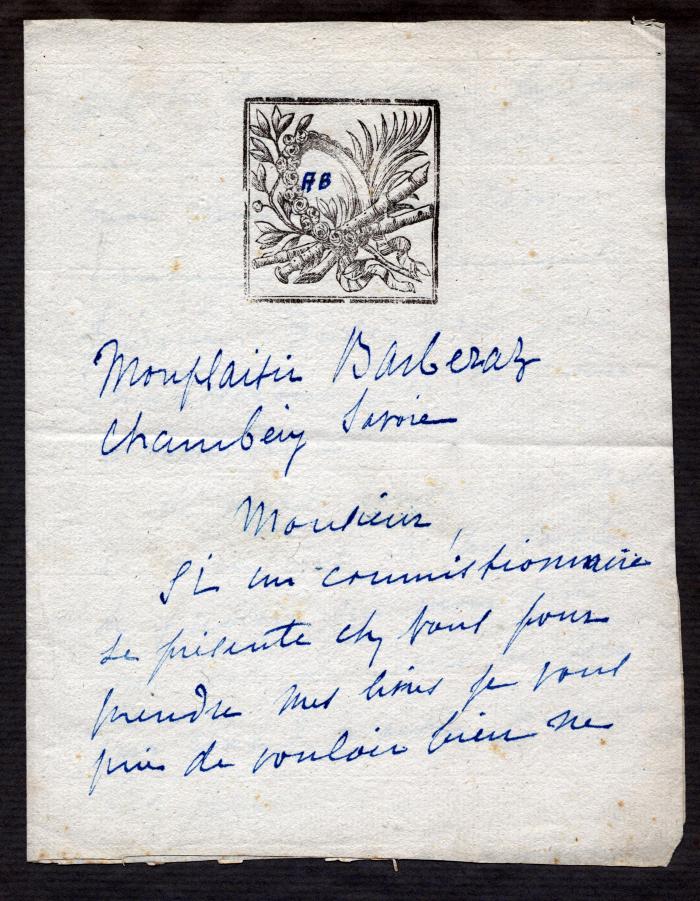 AB
Monplaisir Barberaz
Chambéry Savoie
Monsieur,
Si un commissionnaire
se présente chez vous pour
prendre mes livres je vous
prie de vouloir bien ne